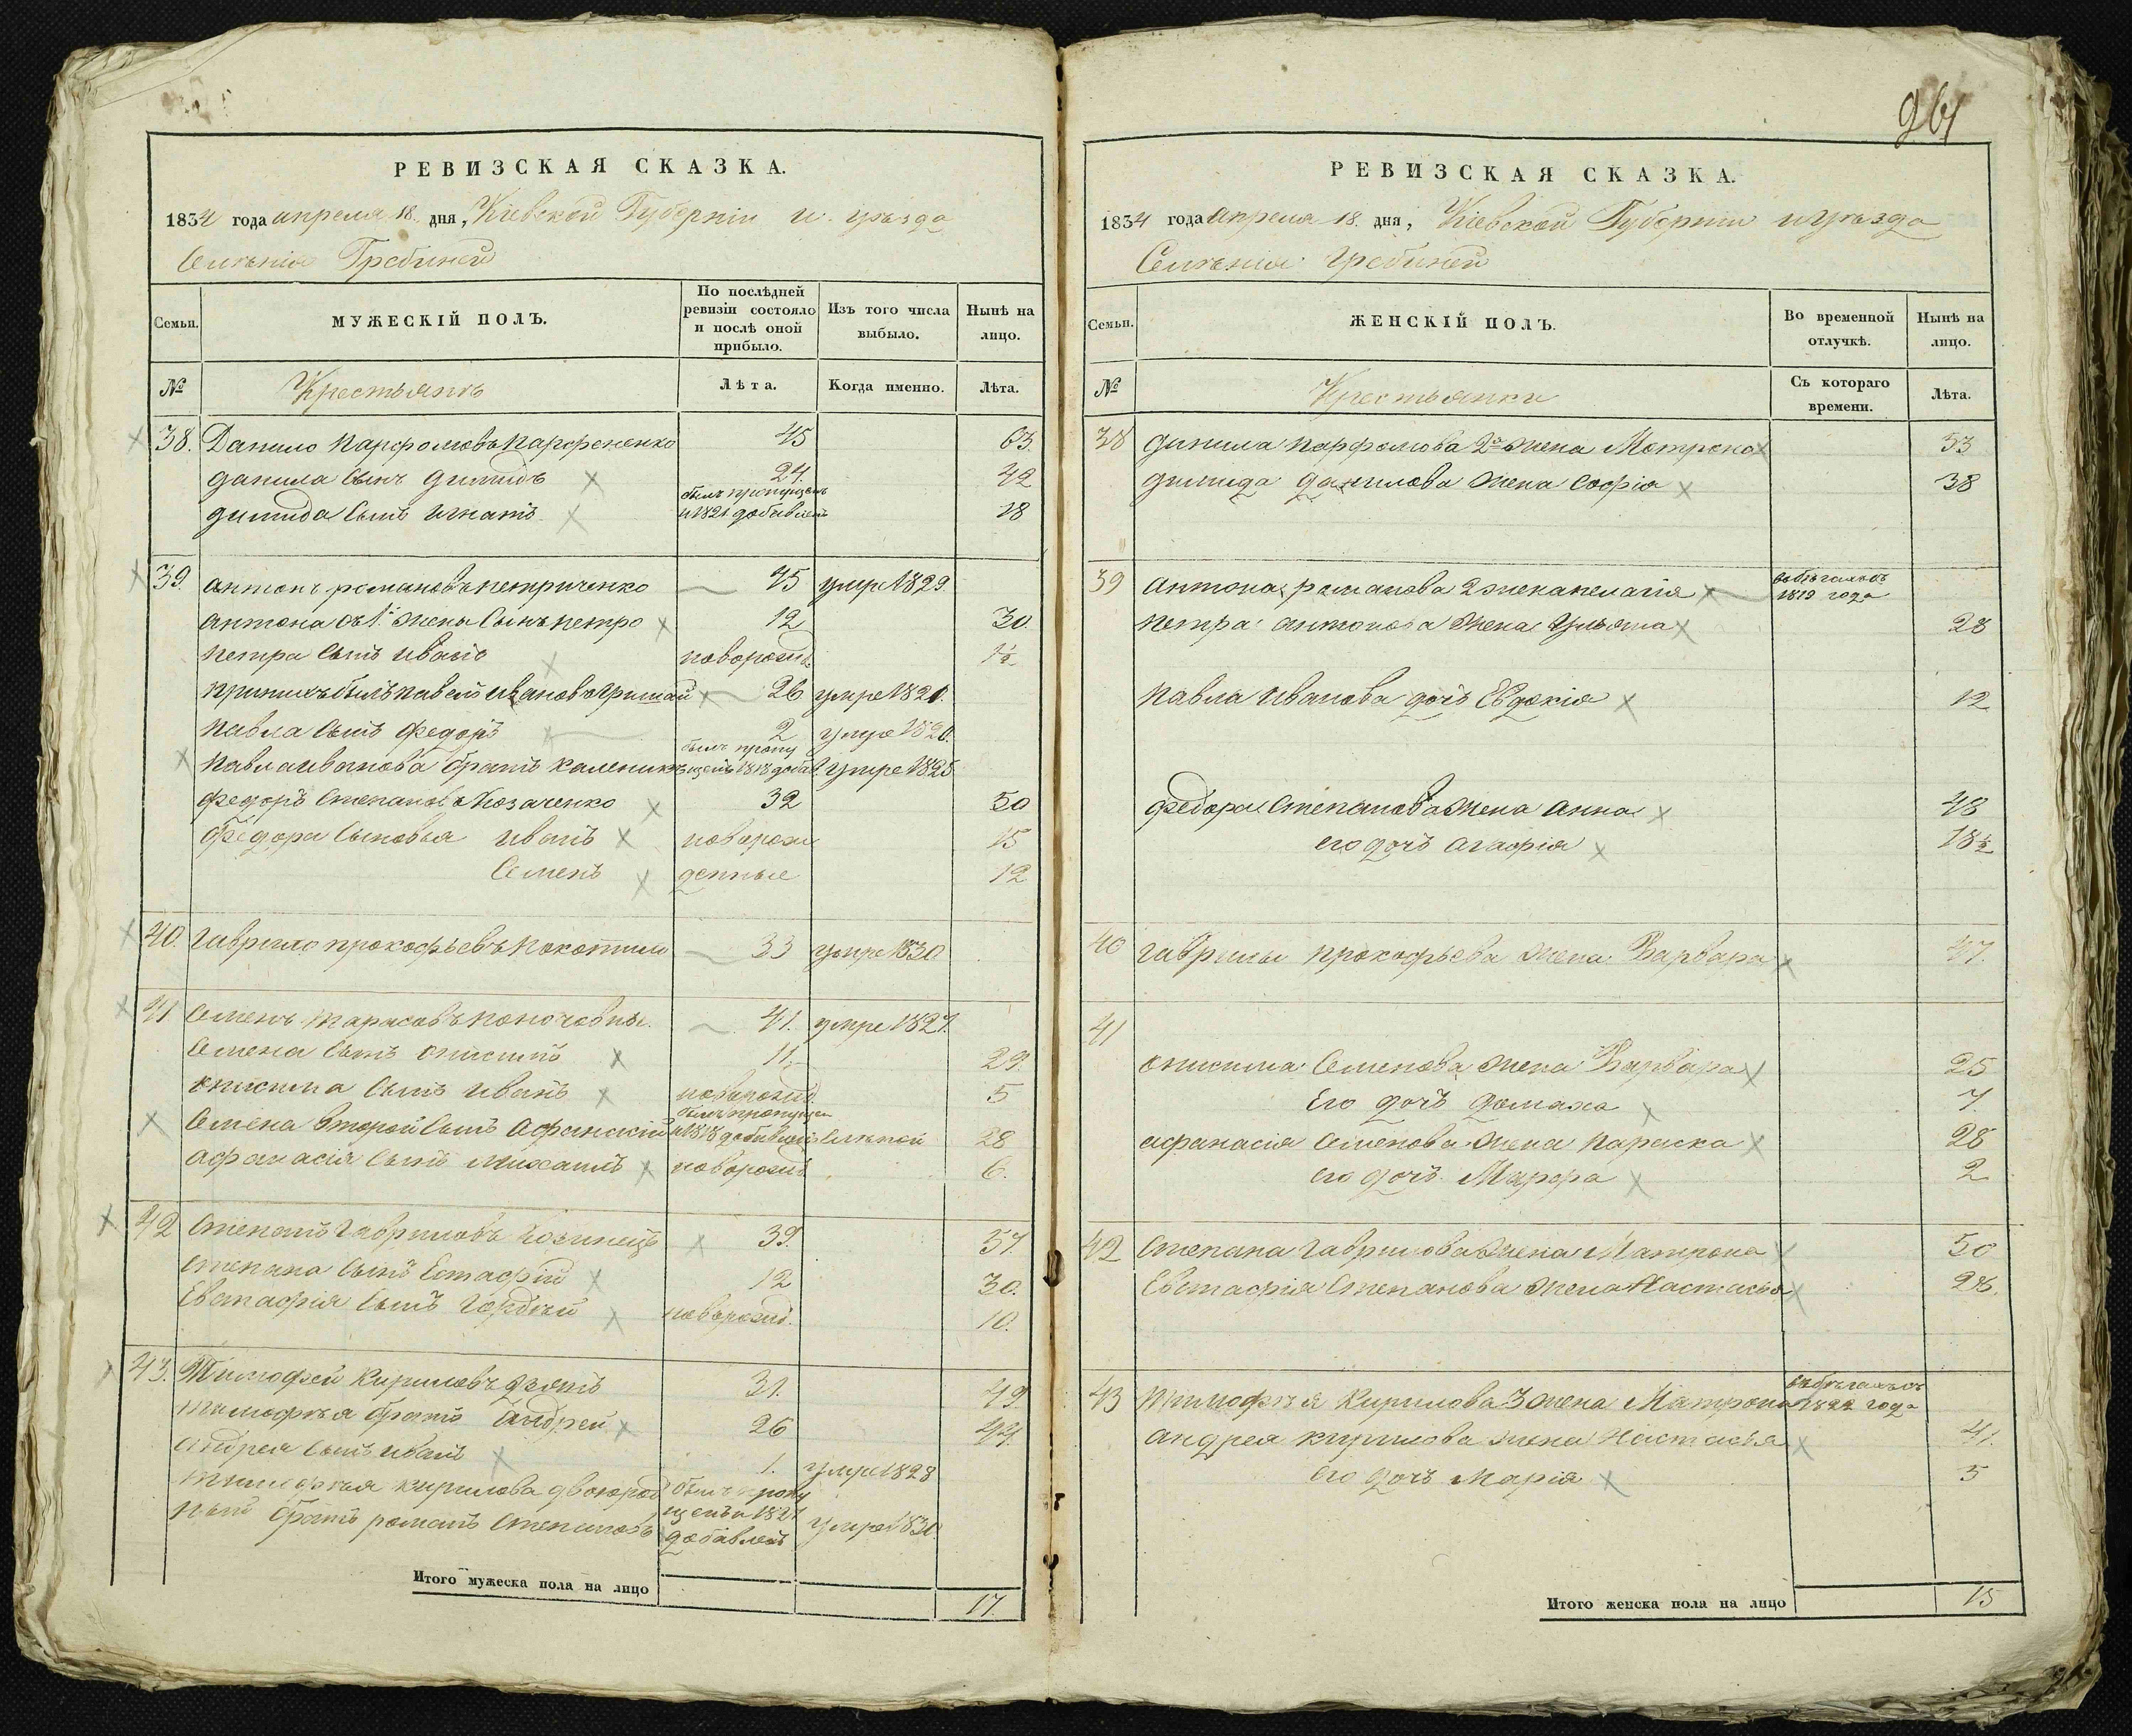 РЕВИЗСКАЯ СКАЗКА.
1834 года апреля 18. дня, Кіевской Губерніи и уѣзда
Селенія Гребиней
Семьи.
МУЖЕСКІЙ ПОЛЪ.
По послѣдней ревизіи состояло и послѣ оной прибыло.
Изъ того числа выбыло.
Нынѣ на лицо.
№
Крестьянъ
Лѣта.
Когда именно.
Лѣта.
38. Данило Парфомовъ Парфененко 45 63.
Данила сынъ Димидъ 24. 42
Димида сынъ Игнатъ былъ пропущенъ и 1821 добавленъ 18
39. Антонъ романовъ петриченко 45 умре 1829.
Антона отъ 1й жены Сынъ петро 12 30.
Петра сынъ Иванъ новорожд. 1½
При нихъ былъ павелъ Ивановъ 26 умре 1821.
Павла сынъ Федоръ 2 умре 1820.
Павла иванова братъ Каленикъ былъ пропущенъ 1818 добав. умре 1825
Федоръ Степановъ Козаченко 32 50
Федора Сыновья Иванъ новорож 15
Семенъ денные 12
40. Гаврило прокофьевъ Покотило 33 умре 1830
41 Семенъ Тарасовъ 41. умре 1827.
Семена сынъ Онисимъ 11. 29.
Онисима сынъ Иванъ новорожд. 5
Семена второй сынъ Афанасій былъ пропущен и 1818 добавленъ слѣпой 28
Афанасія сынъ Михаилъ новорожд. 6.
42 Степанъ Гавриловъ 39. 57.
Степана сынъ Естафій 12 30.
Евстафія сынъ Гордѣй новорожд. 10.
43. Тимофей Кириловъ 31. 49.
Тимофѣя братъ Андрей 26 44.
Андрея сынъ Иванъ 1. умре 1828
Тимофѣя Кирилова двоюрод
ный братъ романъ Степановъ былъ пропущенъ и 1821 добавленъ умре 1830.
Итого мужеска пола на лицо 17.
964
РЕВИЗСКАЯ СКАЗКА.
1834 года апреля 18. дня, Кіевской Губерніи и уѣзда
Селенія Гребиней
Семьи.
ЖЕНСКІЙ ПОЛЪ.
Во временной отлучкѣ.
Нынѣ на лицо.
№
Крестьянки
Съ котораго времени.
Лѣта.
38 Данила Парфомова 2я жена Мотрона 53
Димида данилова жена Софія 38
39 Антона романова 2 жена пелагія въ бѣгахъ съ 1819 года
Петра антонова жена Ульяна 28
Павла Иванова дочь Евдокія 12
Федора Степанова жена Анна 48
его дочь Агафія 18½
40 Гаврилы прокофьева жена Варвара 47.
41
Онисима Семенова жена Варвара 25
Его дочь Домаха 7.
Афанасія Семенова жена Параска 28
его дочь Марфа 2
42 Степана Гаврилова жена Матрона 50
Евстафія Степанова жена Настасья 28.
43 Тимофѣя Кирилова 3 жена Матрона въ бѣгахъ съ 1822 года
Андрея кирилова жена Настасья 41.
его дочь Марія 5
Итого женска пола на лицо 15